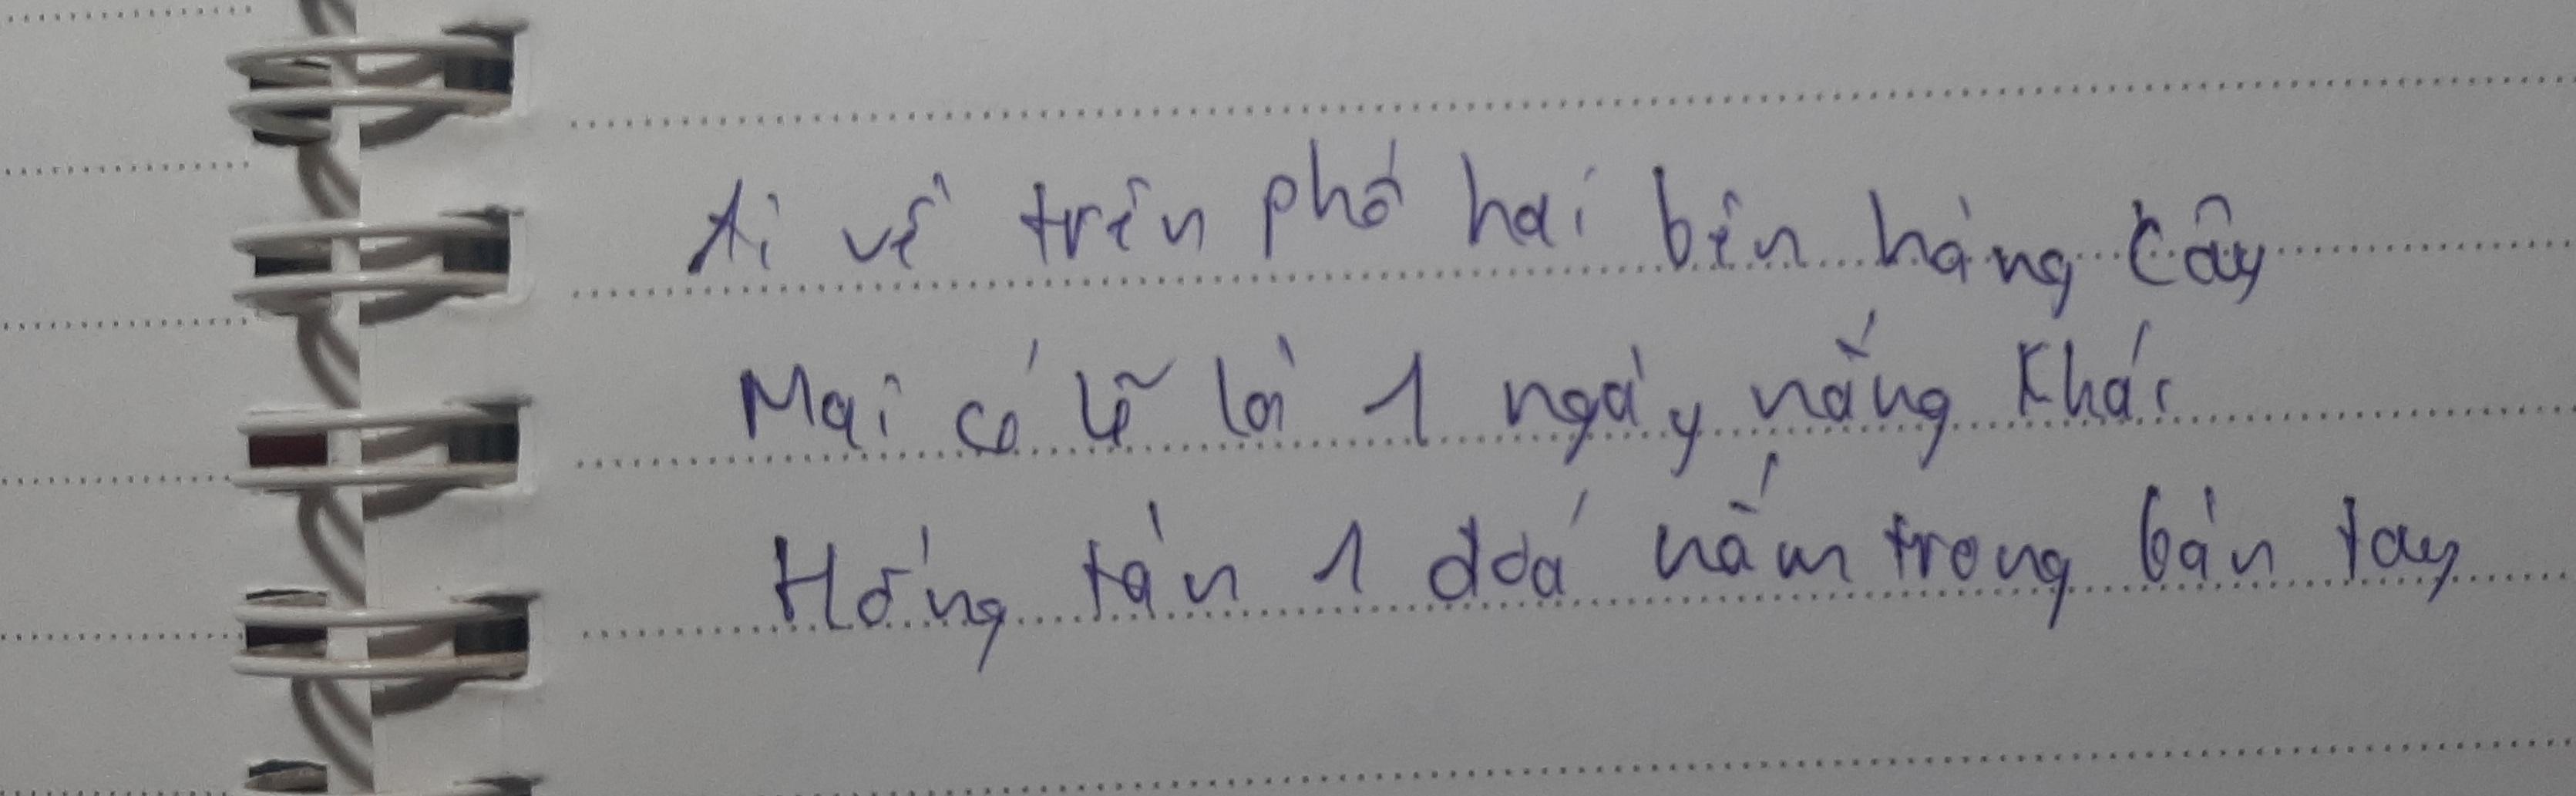 Ai về trên phố hai bên hàng cây
Mai có lẽ là 1 ngày nắng khác
Hồng tàn 1 đoá nắm trong bàn tay